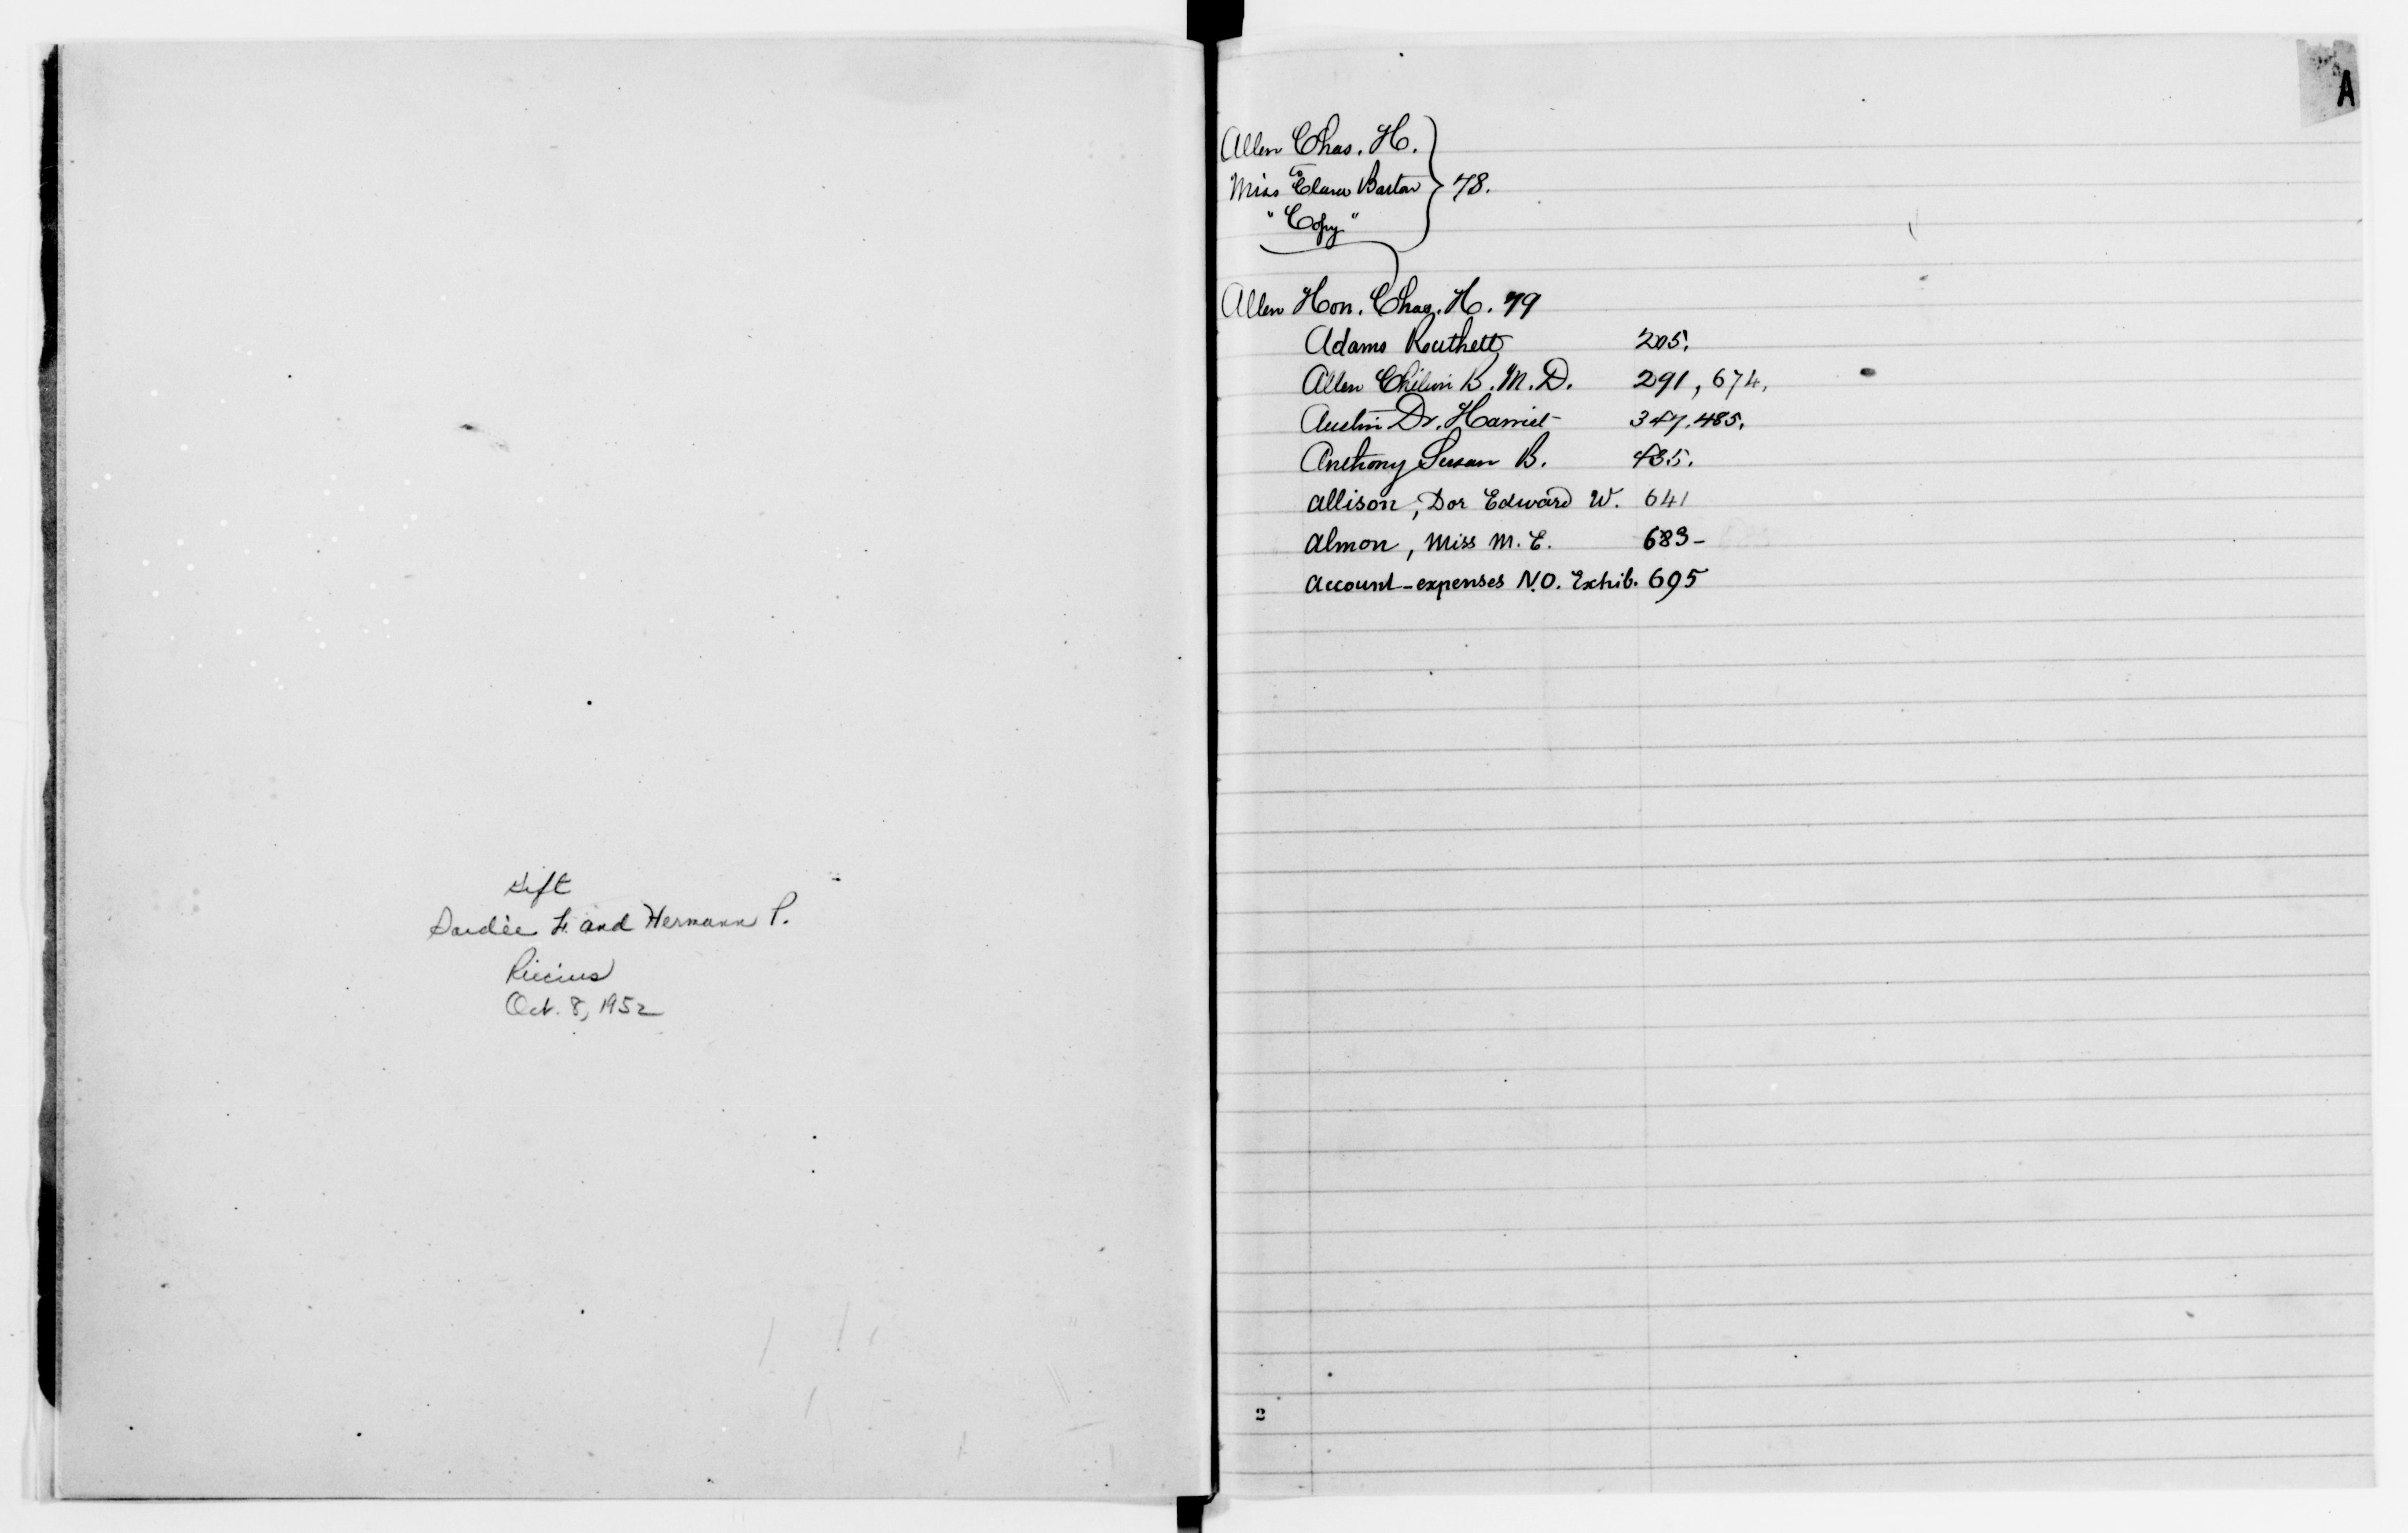 Gift
Saidée F. and Hermann P.
Riccius
Oct. 8, 1952
A
Allen Chas. H.
to
Miss Clara Barton } 78.
"Copy"
Allen Hon. Chas. H. 79
Adams 205.
Allen B. M.D. 291, 674,
Austin Dr. Harriet 347, 485.
Anthony Susan B. 435.
Allison, Dor Edward W. 641
Almon, Miss M. E. 683-
Account-expenses N.O. Exhib. 695
2